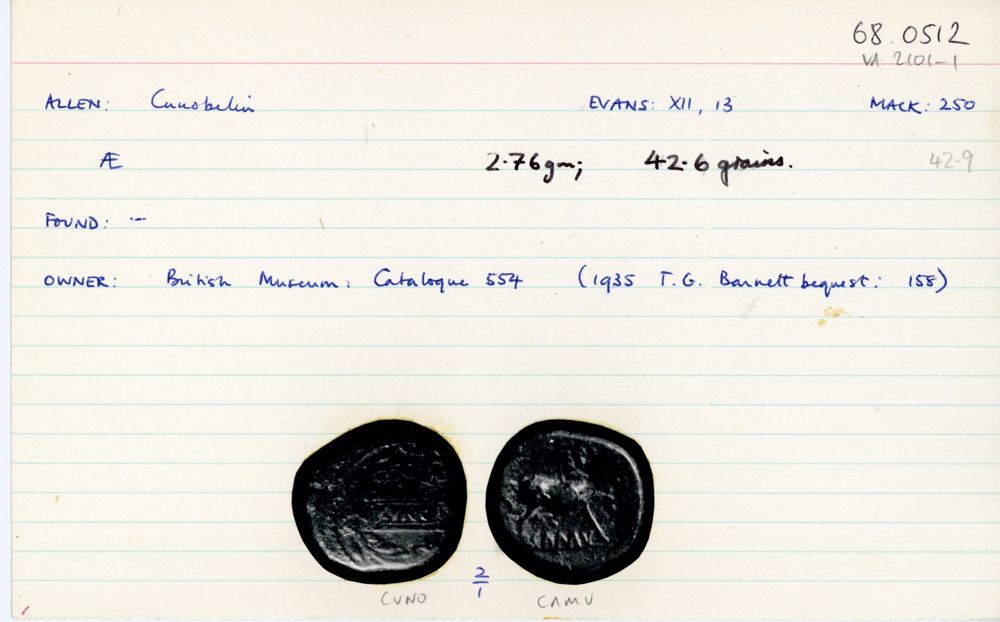 68.0512
VA 2101-1
ALLEN: Cunobelin EVANS: XII, 13 MACK: 250
Æ 2.76gm; 42.6 grains. 42.9
FOUND: --
OWNER: British Museum: Catalogue 554 (1935 T.G. Barnett bequest: 158)
2/1
CUNO CAMU